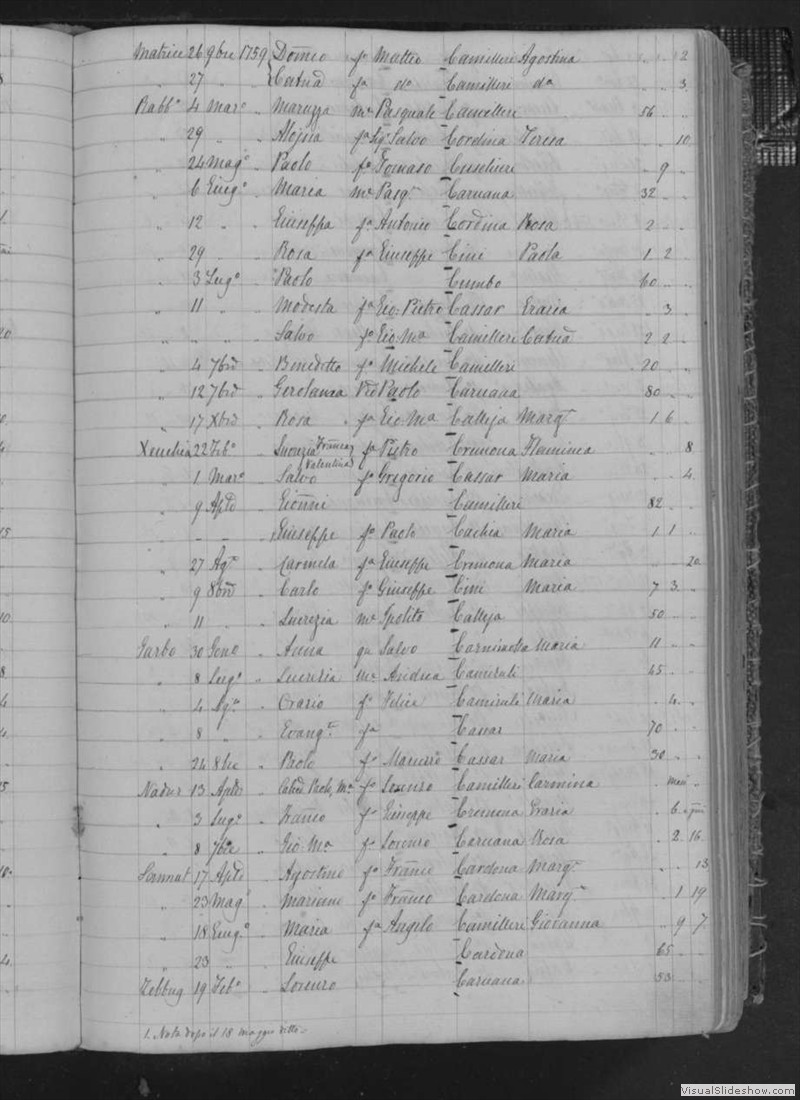 Matrice 26 9bre 1759 Domco fo Matteo Camilleri Agostina . . 2
" 27 " Catna fa do Camilleri da . . 3
Rabbo 4 Maro " Maruzza me Pasquale Camilleri 56 . .
" 29 " " Aloysia fa Salvo Cordina Teresa . . 10
" 24 Mago " Paolo fo Tomaso . 9
" 6 Giugo " Maria me Pasqe Caruana 32 . .
" 12 " " Giuseppa fa Antonio Cordina Rosa 2 . .
" 29 " " Rosa fa Giuseppe Cini Paola 1 2 .
" 3 Lugo " Paolo Cumbo 60 . .
" 11 " " Modesta fa Gio: Pietro Cassar Grazia . 3 .
" " " " Salvo fo Gio Ma Camilleri Catna 2 2 .
" 4 7bre " Benedetto fo Michele Camilleri 20 . .
" 12 7bre " Paolo Caruana 80 . .
" 17 Xbre " Rosa fa Gio Ma Calleja Margta 1 6 .
Xeuchia 22 Febo " Francca Valentina fa Pietro Cremona Flaminia . . 8
" 1 Maro " Salvo fo Gregorio Cassar Maria . . 4
" 9 Aple " Gionni Camilleri 82 . .
" - - Giuseppe fo Paolo Cachia Maria 1 1 .
" 27 Ago " Carmela fa Giuseppe Cremona Maria . . 20
" 9 8bre " Carlo fo Giuseppe Cini Maria 7 3 .
" 11 " Lucrezia me Ipolito Calleja 50 . .
Garbo 30 Geno " Anna qa Salvo Maria 11 . .
" 8 Lugo " me Andrea Camiruli 45 . .
" 4 Ago " Orazio fo Felice Camiruli Maria . 4 .
" 8 " " Evangta fa Cassar 70 . .
" 24 8bre " Paolo fo Cassar Maria 30 . .
Nadur 13 Aple " fo Lorenzo Camilleri Carmina
" 3 Lugo " Franco fo Giuseppe Cremona Grazia . 6
" 8 7bre " Gio: Ma fo Lorenzo Caruana Rosa . 2 16
Sannat 17 Aple " Agostino fo Franco Cardona Margta . . 13
" 23 Mago " fo Franco Cardona Margta . 1 19
" 18 Giugo " Maria fa Angelo Camilleri Giovanna . 9 7
" 23 " " Giuseppe Cardona 65 . .
Zebbug 19 Febo " Lorenzo Caruana 53 . .
1. Nota dopo il 18 Maggio
VisualSlideshow.com